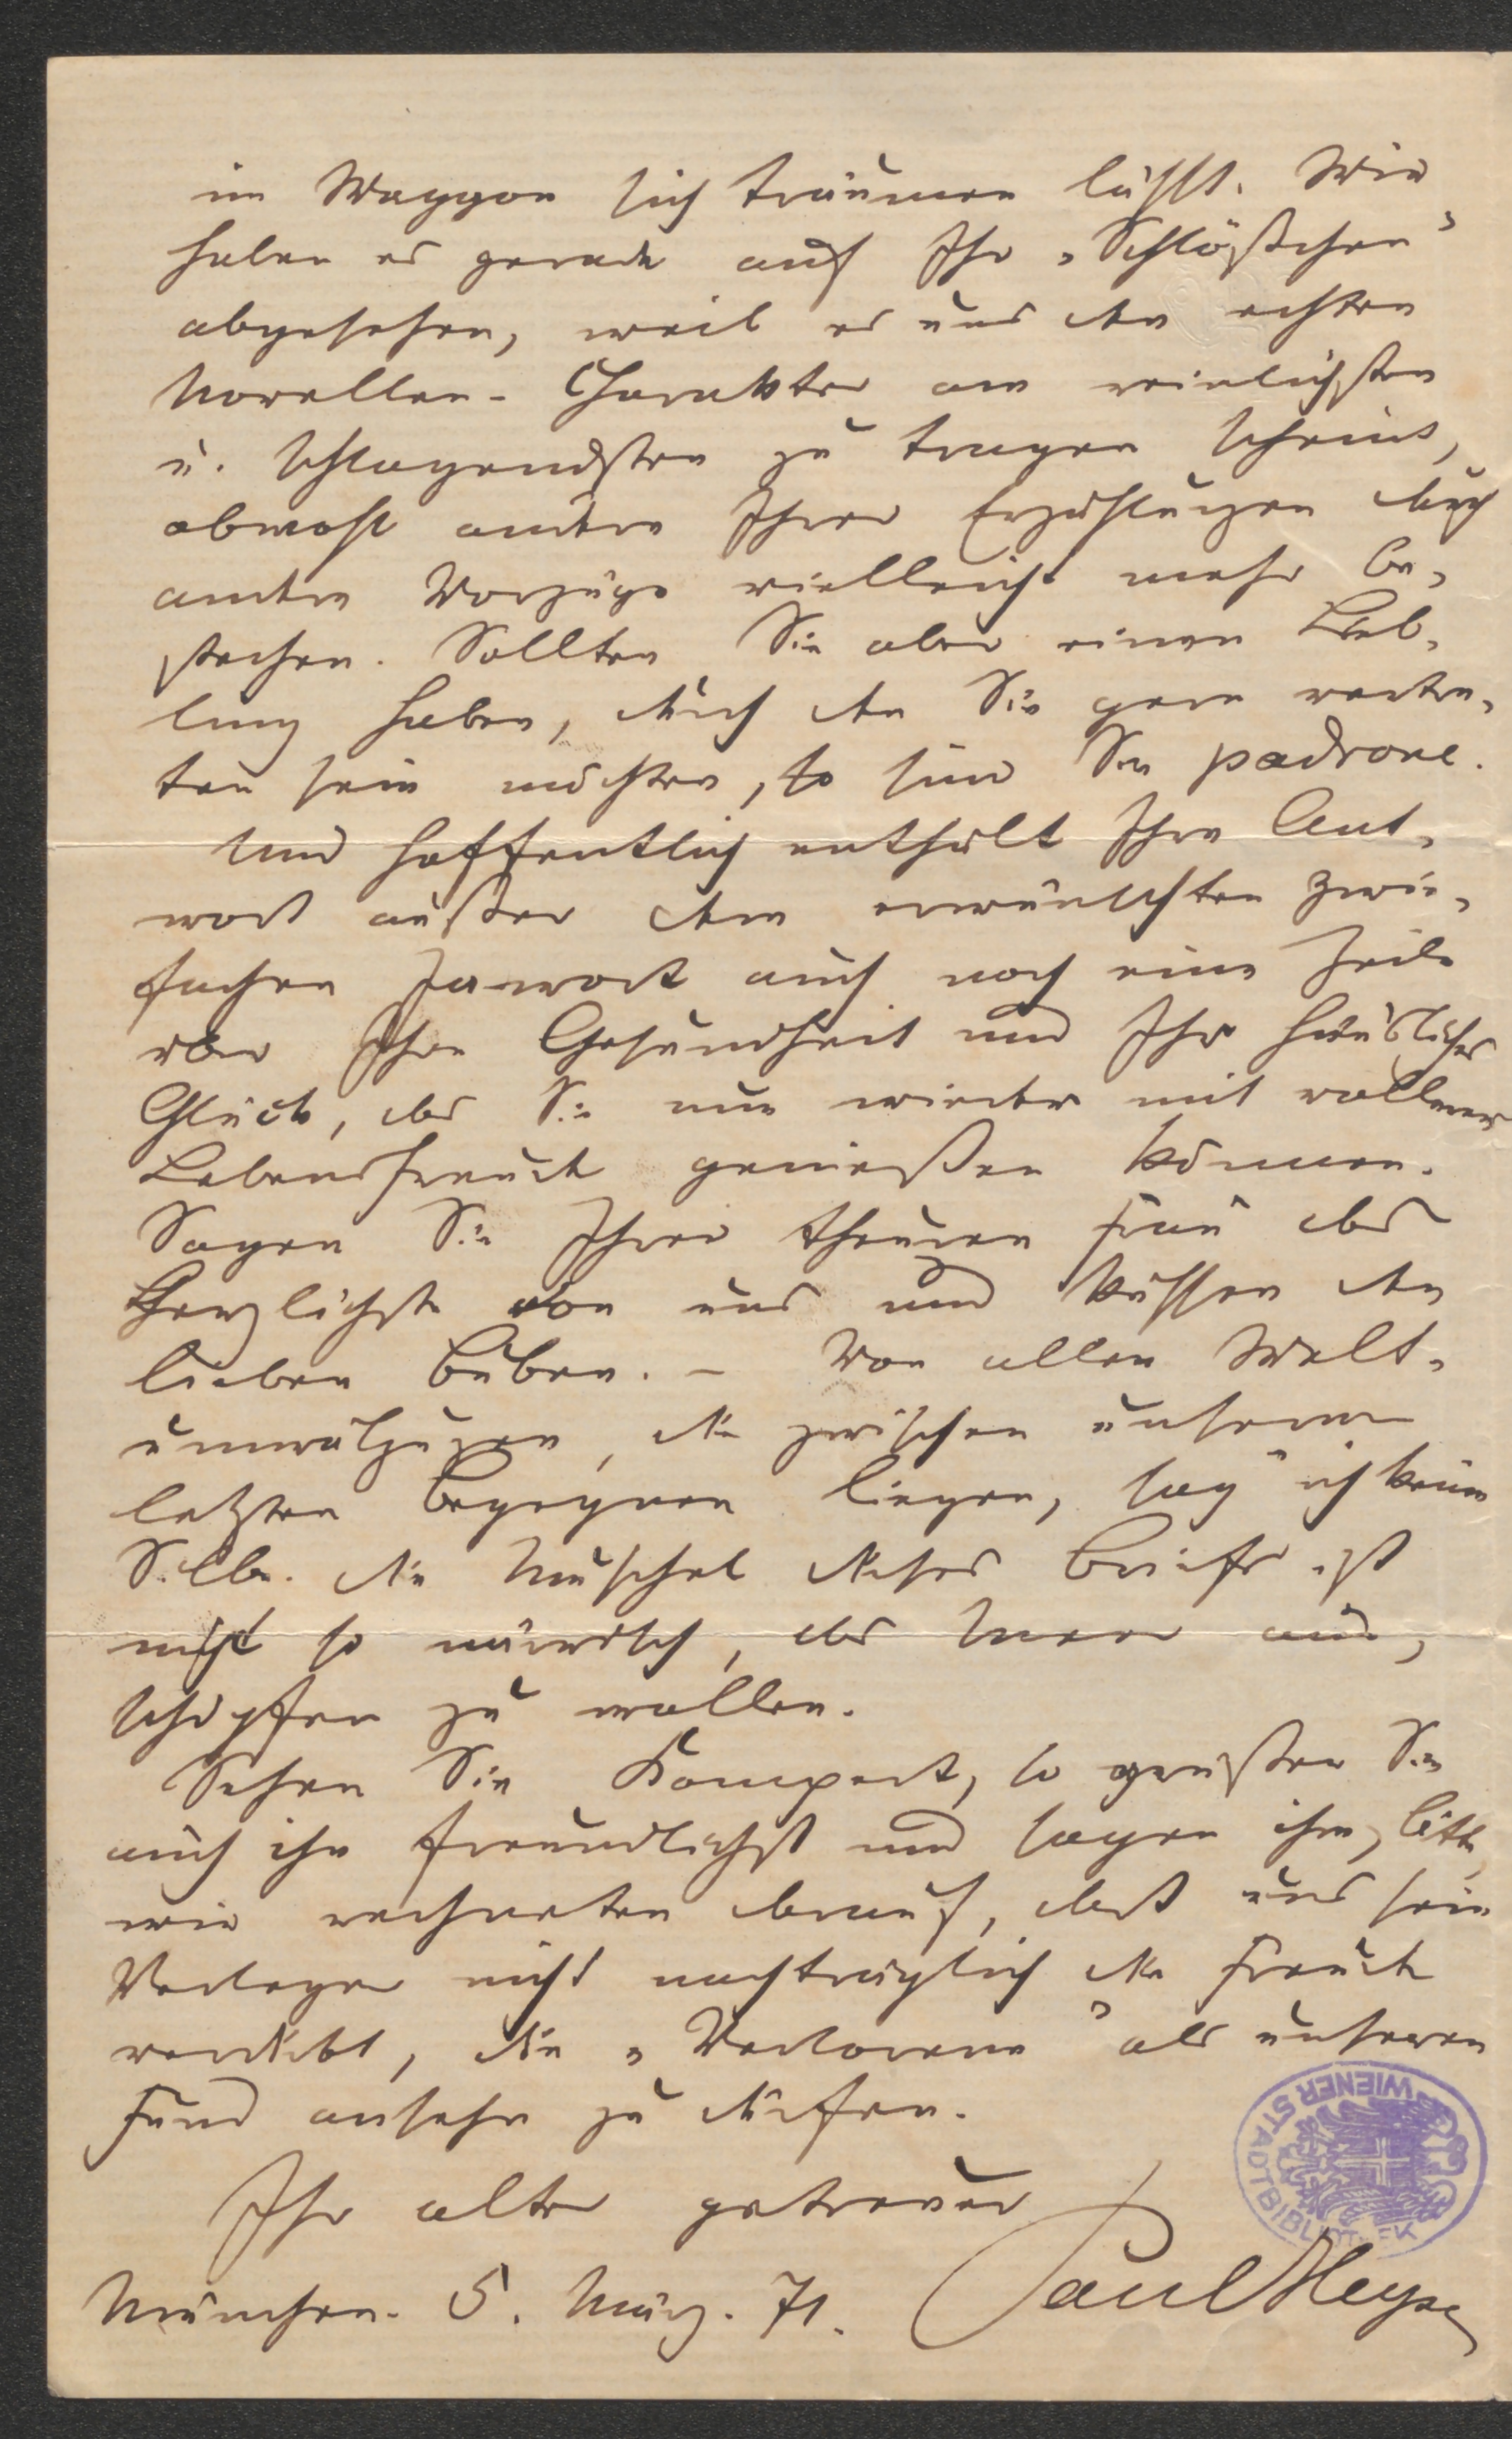 im Waggon sich träumen läßt. Wir
haben es gerade auf Ihr „Schlößchen"
abgesehen, weil es uns den echten
Novellen-Charakter am reinlichsten
u. schlagendsten zu tragen scheint,
obwohl andre Ihrer Erzählungen durch
andre Vorzüge vielleicht mehr be-
stechen. Sollten Sie aber einen Lieb-
ling haben, durch den Sie gern vertre-
ten sein möchten, so sind Sie padrone.
Und hoffentlich enthält Ihre Ant-
wort außer dem erwünschten zwie-
fachen Ja-wort auch noch eine Zeile
über Ihre Gesundheit und Ihr häusliches
Glück, das Sie nun wieder mit vollerer
Lebensfreude genießen können.
Sagen Sie Ihrer theuren Frau das
Herzlichste von uns und küssen den
lieben Buben. – Von allen Welt-
umwälzungen, die zwischen unserm
letzten Begegnen liegen, sag' ich keine
Silbe. Die Muschel dieses Briefs ist
nicht so närrisch, das Meer aus-
schöpfen zu wollen.
Sehen Sie Kompert, so grüßen Sie
auch ihn freundlichst und sagen ihm, bitte,
wir rechneten darauf, daß uns sein
Verleger nicht nachträglich die Freude
verdirbt, die „Verlorene" als unseren
Fund ansehn zu dürfen.
Ihr alter getreuer
München. 5. März. 71. Paul Heyse
WIENER STADTBIBLIOTHEK